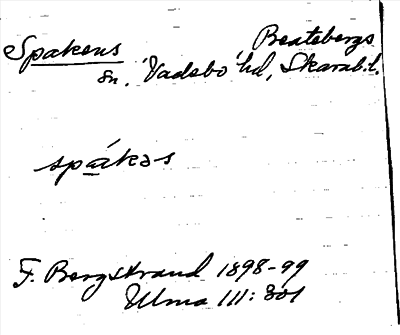 Spakens Beatebergs
sn, Vadsbo hd, Skarab. l.
spákəs
F. Bergstrand 1898-99
Ulma 111:301